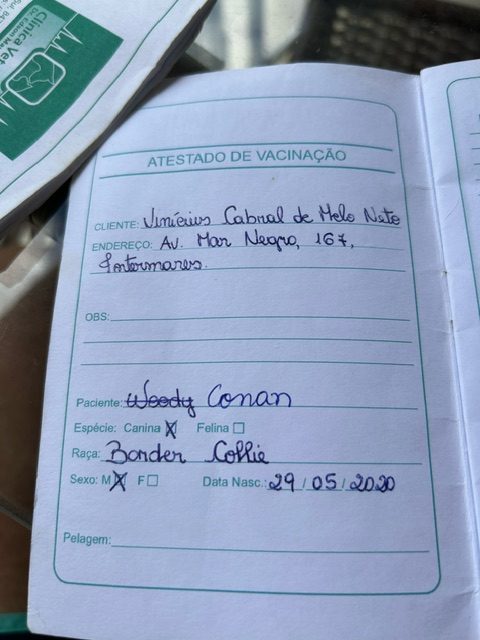 Clínica Vet
ATESTADO DE VACINAÇÃO
CLIENTE: Vinícius Cabral de Melo Neto
ENDEREÇO: Av. Mar Negro, 167,
Intermares.
OBS:
Paciente: Woody Conan
Espécie: Canina X Felina
Raça: Border Collie
Sexo: M X F Data Nasc.: 29/05/2020
Pelagem: